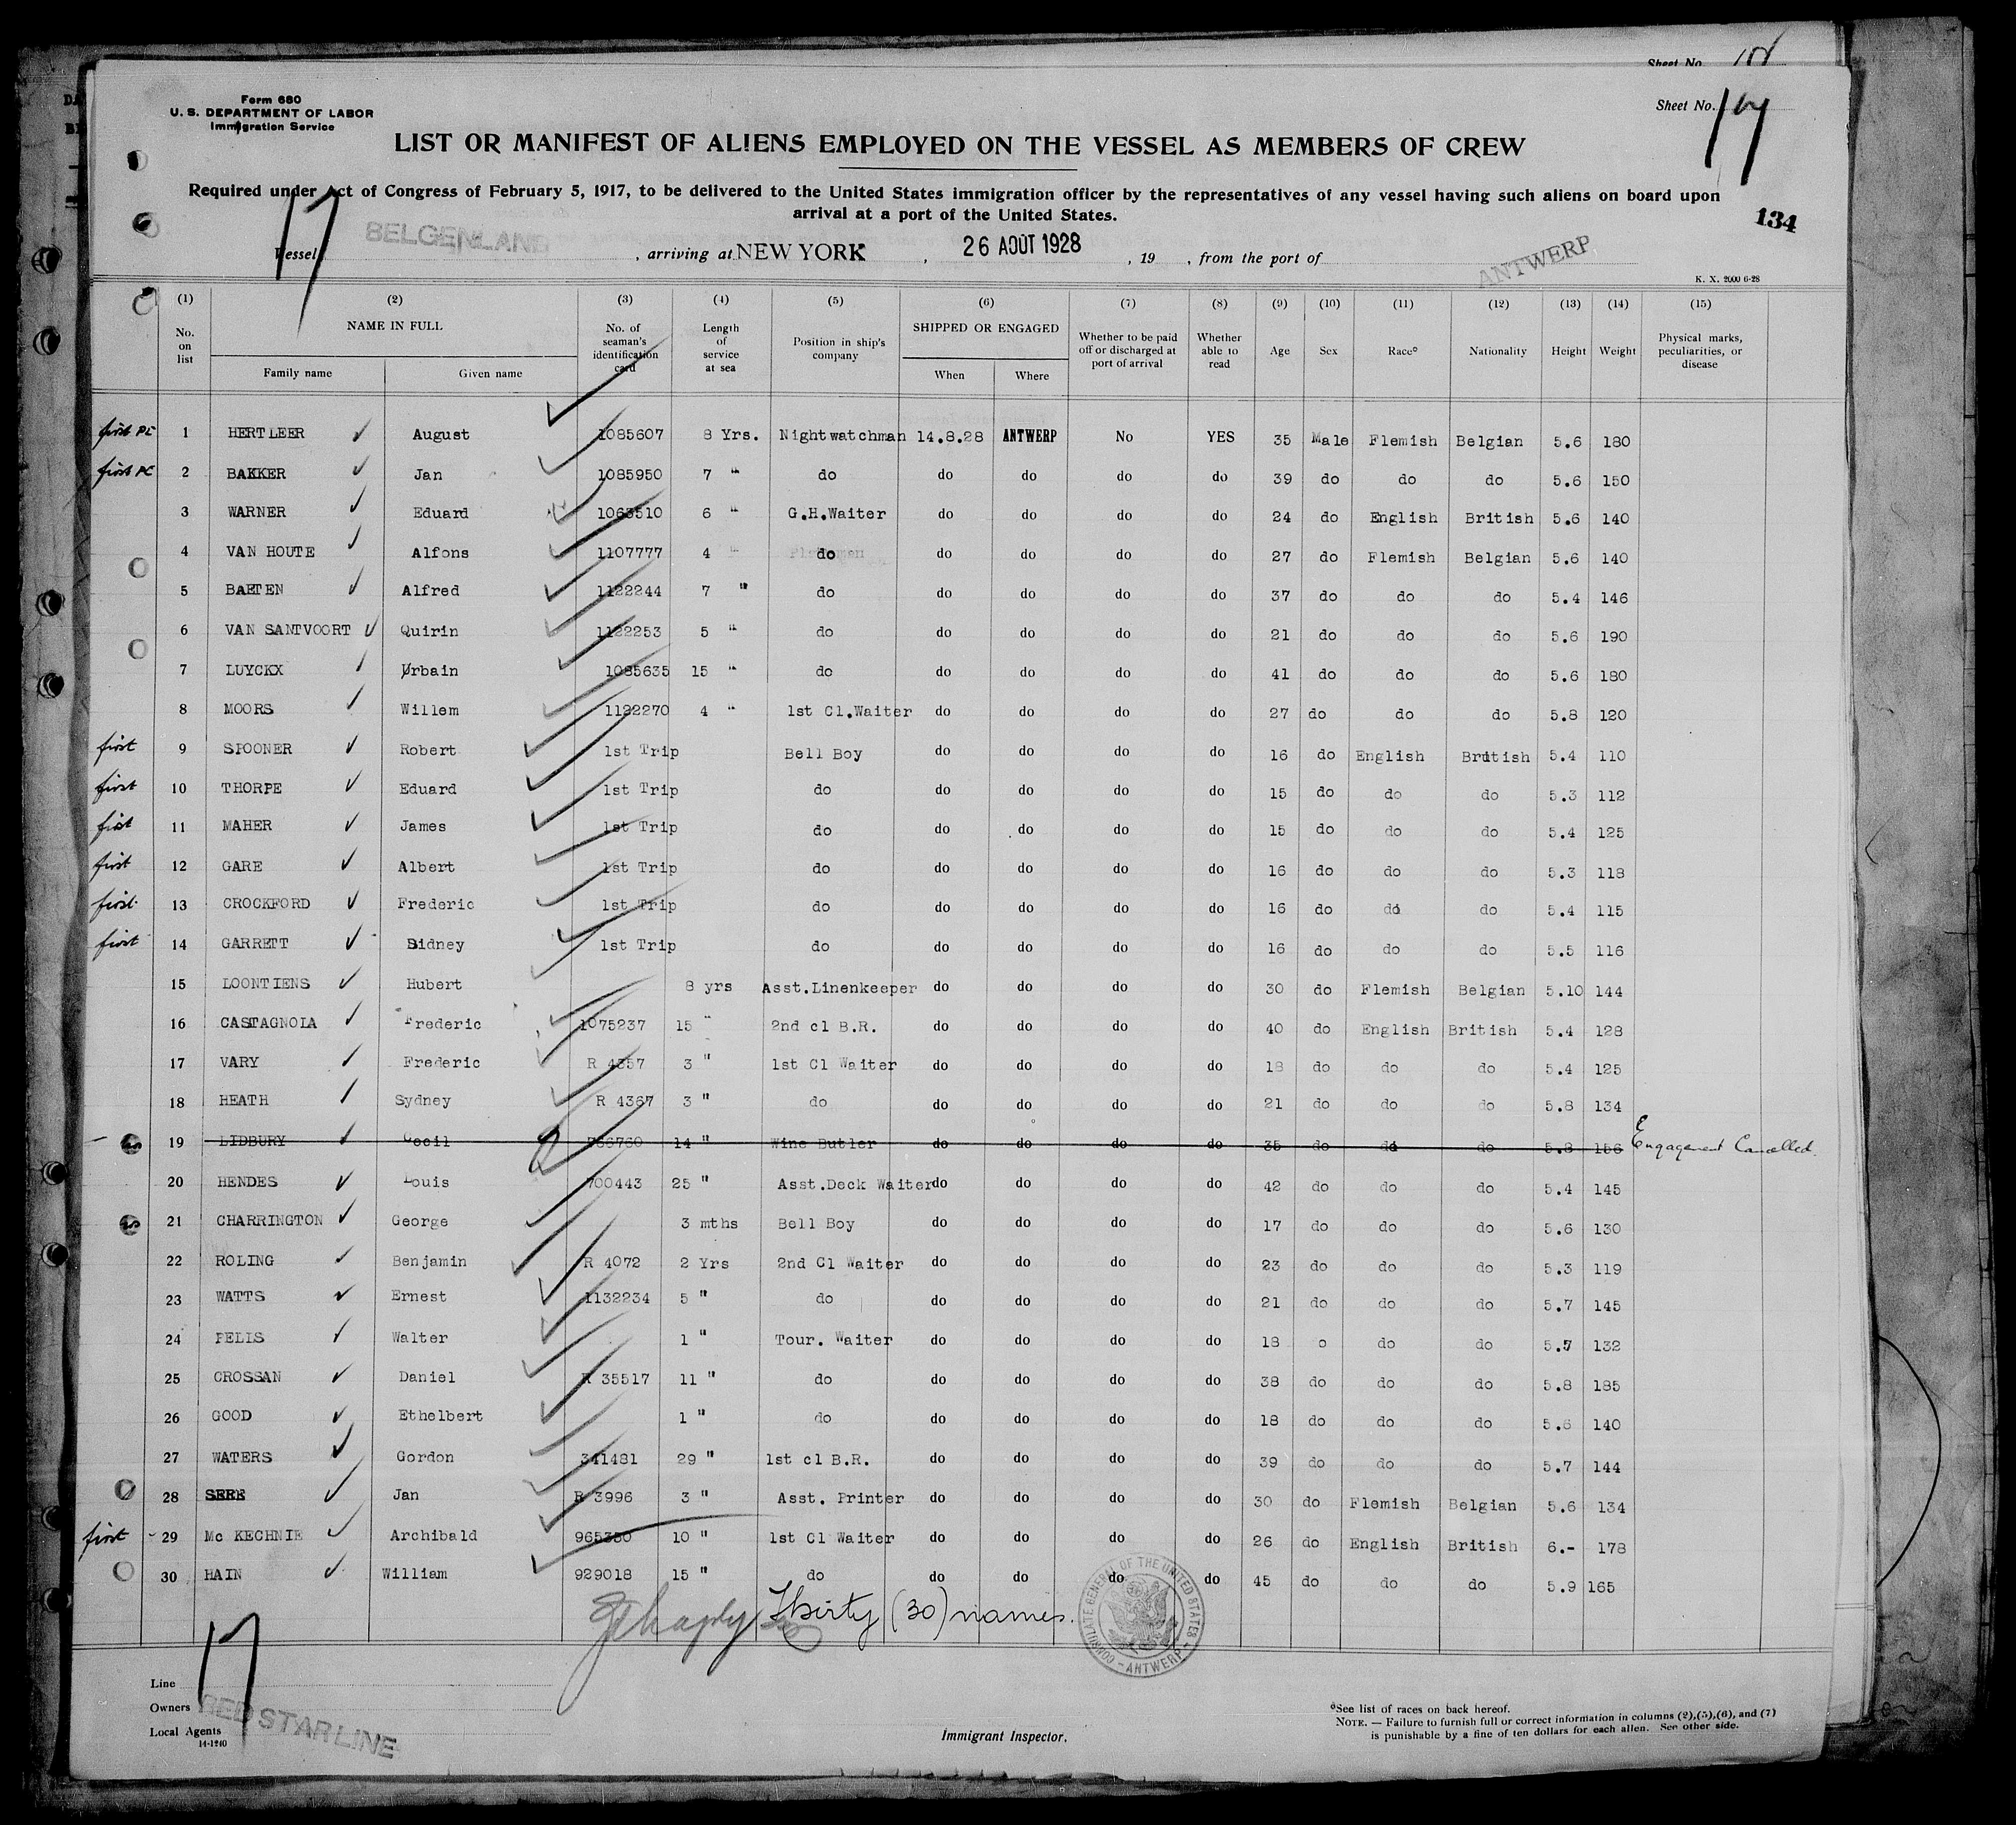 Sheet No.
Form 680
U. S. DEPARTMENT OF LABOR
Immigration Service
Sheet No. 17
LIST OR MANIFEST OF ALIENS EMPLOYED ON THE VESSEL AS MEMBERS OF CREW
Required under Act of Congress of February 5, 1917, to be delivered to the United States immigration officer by the representatives of any vessel having such aliens on board upon
arrival at a port of the United States.
134
17
Vessel BELGENLAND, arriving at NEW YORK, 26 AOUT 1928, 19 , from the port of ANTWERP
K. X. 2000 6-28
(1) (2) (3) (4) (5) (6) (7) (8) (9) (10) (11) (12) (13) (14) (15)
No. on list NAME IN FULL Family name Given name No. of seaman's identification card Length of service at sea Position in ship's company SHIPPED OR ENGAGED When Where Whether to be paid off or discharged at port of arrival Whether able to read Age Sex Race° Nationality Height Weight Physical marks, peculiarities, or disease
first PC 1 HERTLEER August 1085607 8 Yrs. Nightwatchman 14.8.28 ANTWERP No YES 35 Male Flemish Belgian 5.6 180
first PC 2 BAKKER Jan 1085950 7 " do do do do do 39 do do do 5.6 150
3 WARNER Eduard 1063510 6 " G.H.Waiter do do do do 24 do English British 5.6 140
4 VAN HOUTE Alfons 1107777 4 " do do do do do 27 do Flemish Belgian 5.6 140
5 BAETEN Alfred 1122244 7 " do do do do do 37 do do do 5.4 146
6 VAN SANTVOORT Quirin 1122253 5 " do do do do do 21 do do do 5.6 190
7 LUYCKX Urbain 1085635 15 " do do do do do 41 do do do 5.6 180
8 MOORS Willem 1122270 4 " 1st Cl.Waiter do do do do 27 do do do 5.8 120
first 9 SPOONER Robert 1st Trip Bell Boy do do do do 16 do English British 5.4 110
first 10 THORPE Eduard 1st Trip do do do do do 15 do do do 5.3 112
first 11 MAHER James 1st Trip do do do do do 15 do do do 5.4 125
first 12 GARE Albert 1st Trip do do do do do 16 do do do 5.3 118
first 13 CROCKFORD Frederic 1st Trip do do do do do 16 do do do 5.4 115
first 14 GARRETT Sidney 1st Trip do do do do do 16 do do do 5.5 116
15 LOONTIENS Hubert 8 yrs Asst.Linenkeeper do do do do 30 do Flemish Belgian 5.10 144
16 CASTAGNOLA Frederic 1075237 15 " 2nd cl B.R. do do do do 40 do English British 5.4 128
17 VARY Frederic R 4357 3 " 1st Cl Waiter do do do do 18 do do do 5.4 125
18 HEATH Sydney R 4367 3 " do do do do do 21 do do do 5.8 134
19 LIDBURY Cecil 14 " Wine Butler do do do do 35 do do do 5.8 156 Engagement Cancelled.
20 HENDES Louis 700443 25 " Asst.Deck Waiter do do do do 42 do do do 5.4 145
21 CHARRINGTON George 3 mths Bell Boy do do do do 17 do do do 5.6 130
22 ROLING Benjamin R 4072 2 Yrs 2nd Cl Waiter do do do do 23 do do do 5.3 119
23 WATTS Ernest 1132234 5 " do do do do do 21 do do do 5.7 145
24 PELIS Walter 1 " Tour. Waiter do do do do 18 o do do 5.7 132
25 CROSSAN Daniel R 35517 11 " do do do do do 38 do do do 5.8 185
26 GOOD Ethelbert 1 " do do do do do 18 do do do 5.6 140
27 WATERS Gordon 341481 29 " 1st cl B.R. do do do do 39 do do do 5.7 144
28 Jan R 3996 3 " Asst. Printer do do do do 30 do Flemish Belgian 5.6 134
first 29 Mc KECHNIE Archibald 965350 10 " 1st Cl Waiter do do do do 26 do English British 6.- 178
30 HAIN William 929018 15 " do do do do do 45 do do do 5.9 165
Thirty (30) names.
CONSULATE GENERAL OF THE UNITED STATES - ANTWERP
17
Line
Owners RED STAR LINE
Local Agents
14-1240
Immigrant Inspector.
°See list of races on back hereof.
NOTE. — Failure to furnish full or correct information in columns (2),(5),(6), and (7)
is punishable by a fine of ten dollars for each alien. See other side.